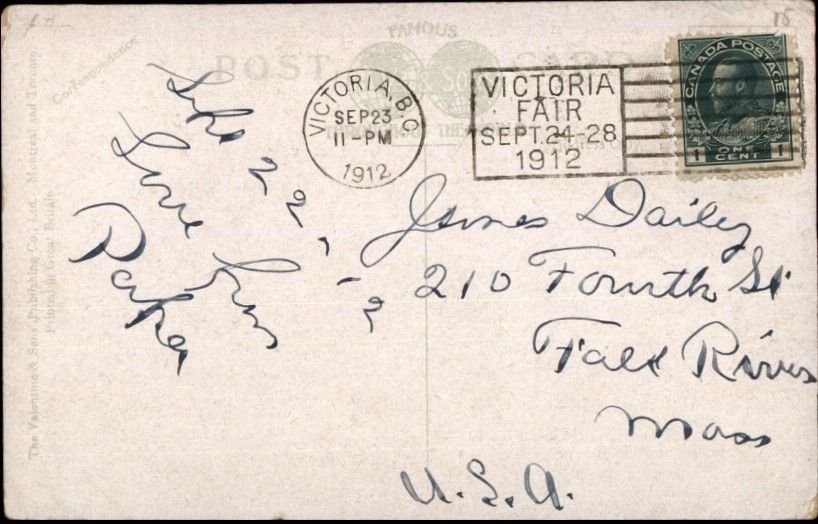 FAMOUS
POST CARD
& SON
THROUGHOUT THE
Correspondence
The Valentine & Sons' Publishing Co., Ltd. Montreal and Toronto
Printed in Great Britain
18
VICTORIA, B.C.
SEP 23
11-PM
1912
VICTORIA
FAIR
SEPT. 24-28
1912
CANADA POSTAGE
1 ONE 1
CENT
22, 12
Love from
James Dailey
210 Fourth St
Fall River
Mass
U.S.A.